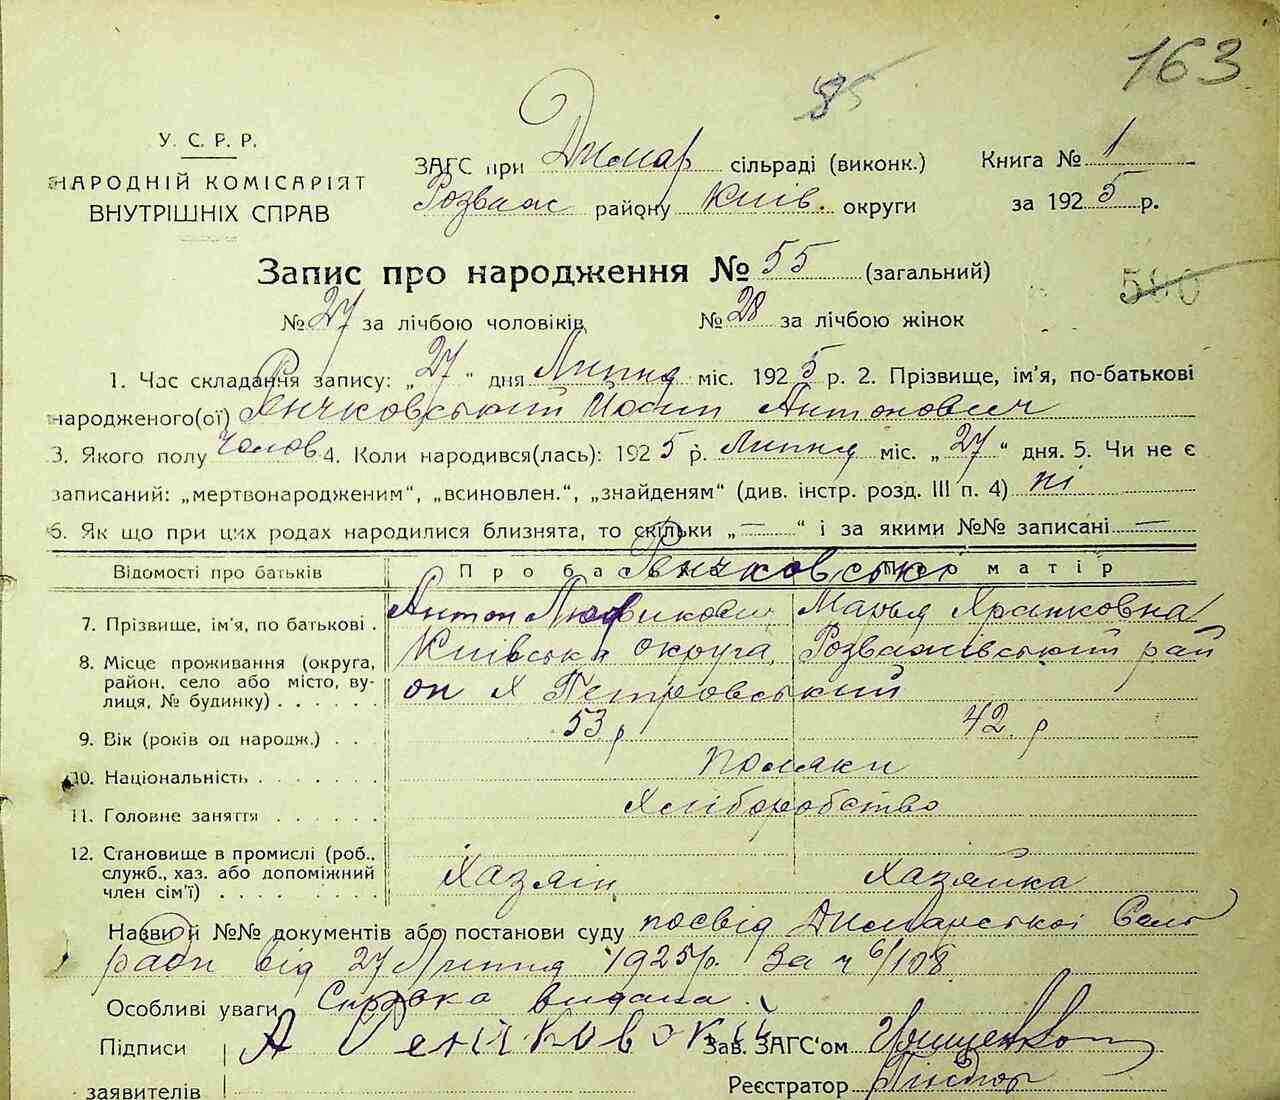 163
85
У. С. Р. Р.
НАРОДНІЙ КОМІСАРІЯТ
ВНУТРІШНІХ СПРАВ
ЗАГС при Димар сільраді (виконк.)
Розваж району Київ. округи
Книга № 1
за 1925 р.
Запис про народження № 55 (загальний)
590
№ 27 за лічбою чоловіків № 28 за лічбою жінок
1. Час складання запису: „27“ дня Липня міс. 1925 р. 2. Прізвище, ім'я, по-батькові
народженого(ої) Рєнчковський Йосип Антонович
3. Якого полу Чолов 4. Коли народився(лась): 1925 р. Липня міс. „27“ дня. 5. Чи не є
записаний: „мертвонародженим“, „всиновлен.“, „знайденям“ (див. інстр. розд. III п. 4) ні
6. Як що при цих родах народилися близнята, то скільки „—“ і за якими №№ записані —
Відомості про батьків Про батька Про матір
Рєнчковські
7. Прізвище, ім'я, по батькові . Антон Людвикович Марья Яранковна
8. Місце проживання (округа, Київська округа, Розважівський рай
район, село або місто, ву- он х Петровський
лиця, № будинку) . . . . . .
9. Вік (років од народж.) . . . 53 р 42 р
10. Національність . . . . . . . Поляки
11. Головне заняття . . . . . . Хліборобство
12. Становище в промислі (роб.,
служб., хаз. або допоміжний Хазяін Хазяйка
член сім'ї) . . . . . . . .
Назви й №№ документів або постанови суду посвід Димарської Сель
ради від 27 Липня 1925 р. За ч 6/108
Особливі уваги Справка видана.
Підписи А Ренчковский Зав. ЗАГС'ом
заявителів Реєстратор